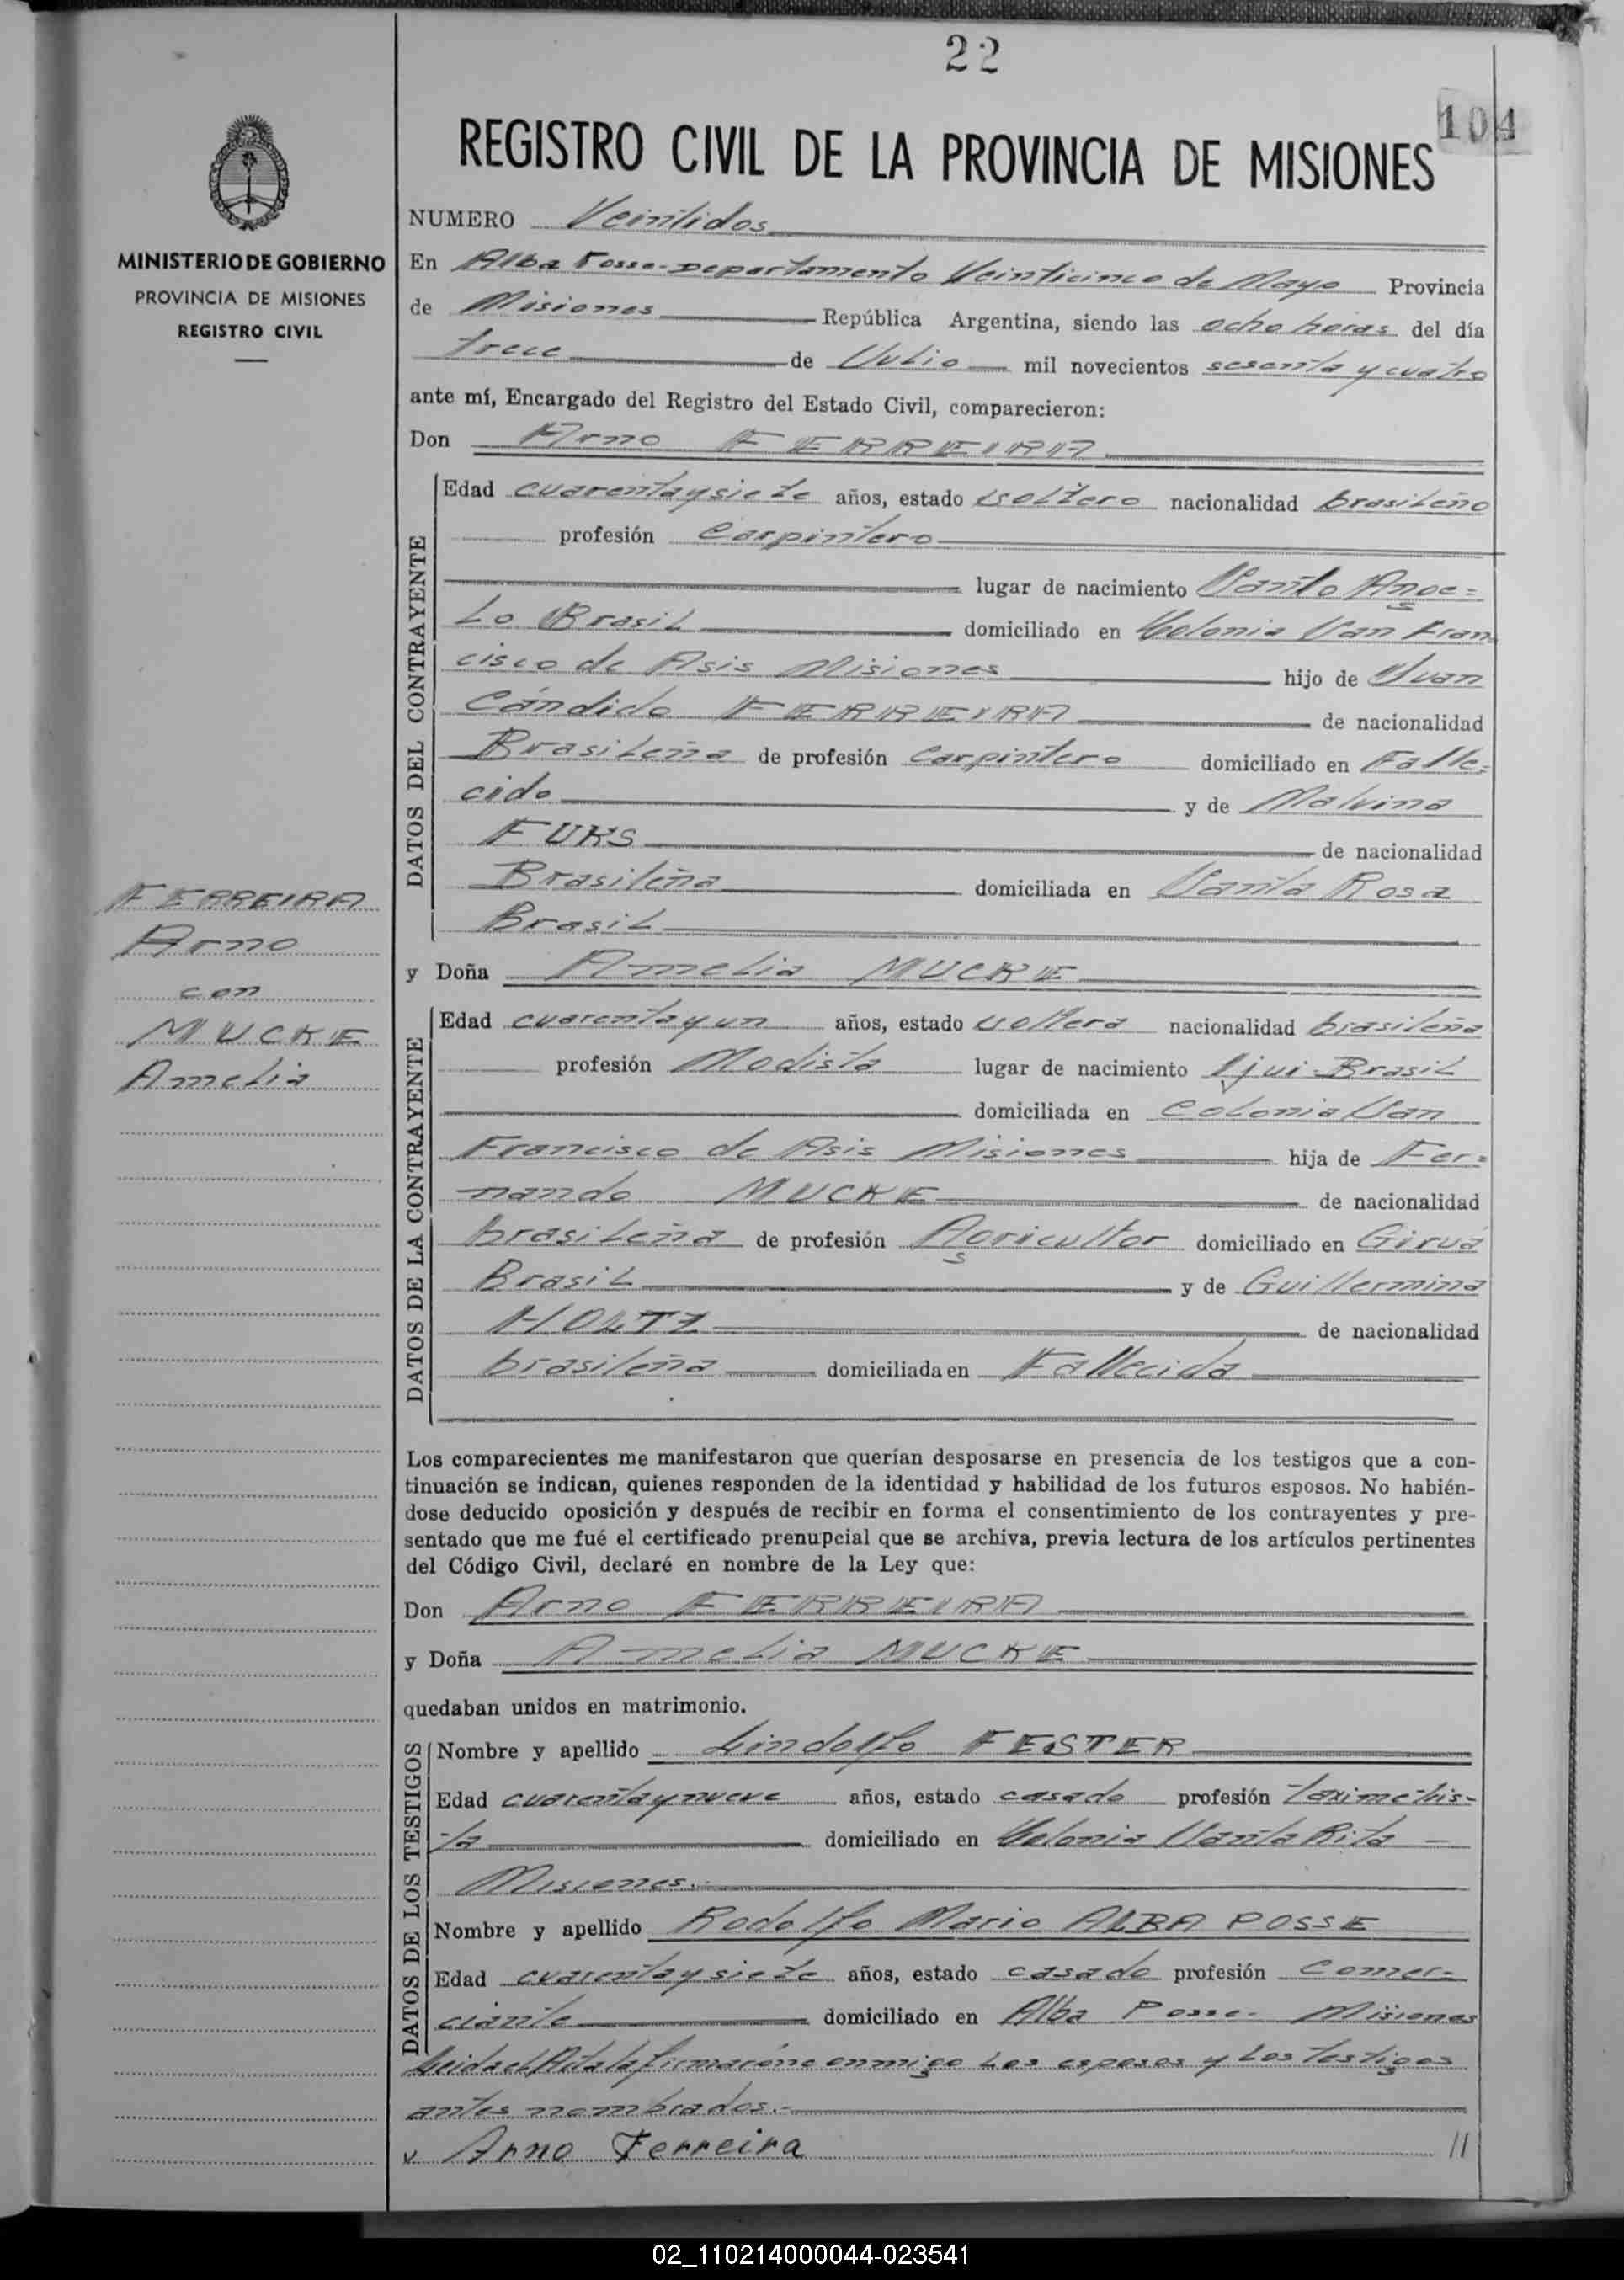 22
104
REGISTRO CIVIL DE LA PROVINCIA DE MISIONES
MINISTERIO DE GOBIERNO
PROVINCIA DE MISIONES
REGISTRO CIVIL
FERREIRA
Arno
con
MUCKE
Amelia
NUMERO Veintidos
En Alba Posse-Departamento Veinticinco de Mayo Provincia
de Misiones República Argentina, siendo las ocho horas del día
trece de Julio mil novecientos sesenta y cuatro
ante mí, Encargado del Registro del Estado Civil, comparecieron:
Don Arno FERREIRA
DATOS DEL CONTRAYENTE
Edad cuarentaysiete años, estado soltero nacionalidad brasileño
profesión Carpintero
lugar de nacimiento Santo Ange=
Lo Brasil domiciliado en Colonia San Fran
cisco de Asis Misiones hijo de Juan
Cándido FERREIRA de nacionalidad
Brasileña de profesión Carpintero domiciliado en Falle=
cido y de Malvina
FUKS de nacionalidad
Brasileña domiciliada en Santa Rosa
Brasil
y Doña Amelia MUCKE
DATOS DE LA CONTRAYENTE
Edad cuarentayun años, estado soltera nacionalidad brasileña
profesión Modista lugar de nacimiento Ijui-Brasil
domiciliada en Colonia San
Francisco de Asis Misiones hija de Fer=
nando MUCKE de nacionalidad
brasileña de profesión Agricultor domiciliado en Giruá
Brasil y de Guillermina
HOLTZ de nacionalidad
brasileña domiciliada en Fallecida
Los comparecientes me manifestaron que querían desposarse en presencia de los testigos que a con-
tinuación se indican, quienes responden de la identidad y habilidad de los futuros esposos. No habién-
dose deducido oposición y después de recibir en forma el consentimiento de los contrayentes y pre-
sentado que me fué el certificado prenupcial que se archiva, previa lectura de los artículos pertinentes
del Código Civil, declaré en nombre de la Ley que:
Don Arno FERREIRA
y Doña Amelia MUCKE
quedaban unidos en matrimonio.
DATOS DE LOS TESTIGOS
Nombre y apellido Lindolfo FESTER
Edad cuarentaynueve años, estado casado profesión taximetris-
ta domiciliado en Colonia Santa Rita -
Misiones.-
Nombre y apellido Rodolfo Mario ALBA POSSE
Edad cuarentaysiete años, estado casado profesión Comer=
ciante domiciliado en Alba Posse- Misiones
Leida el Acta la firmaron conmigo Los esposos y Los testigos
antes nombrados.-
Arno Ferreira //
02_110214000044-023541